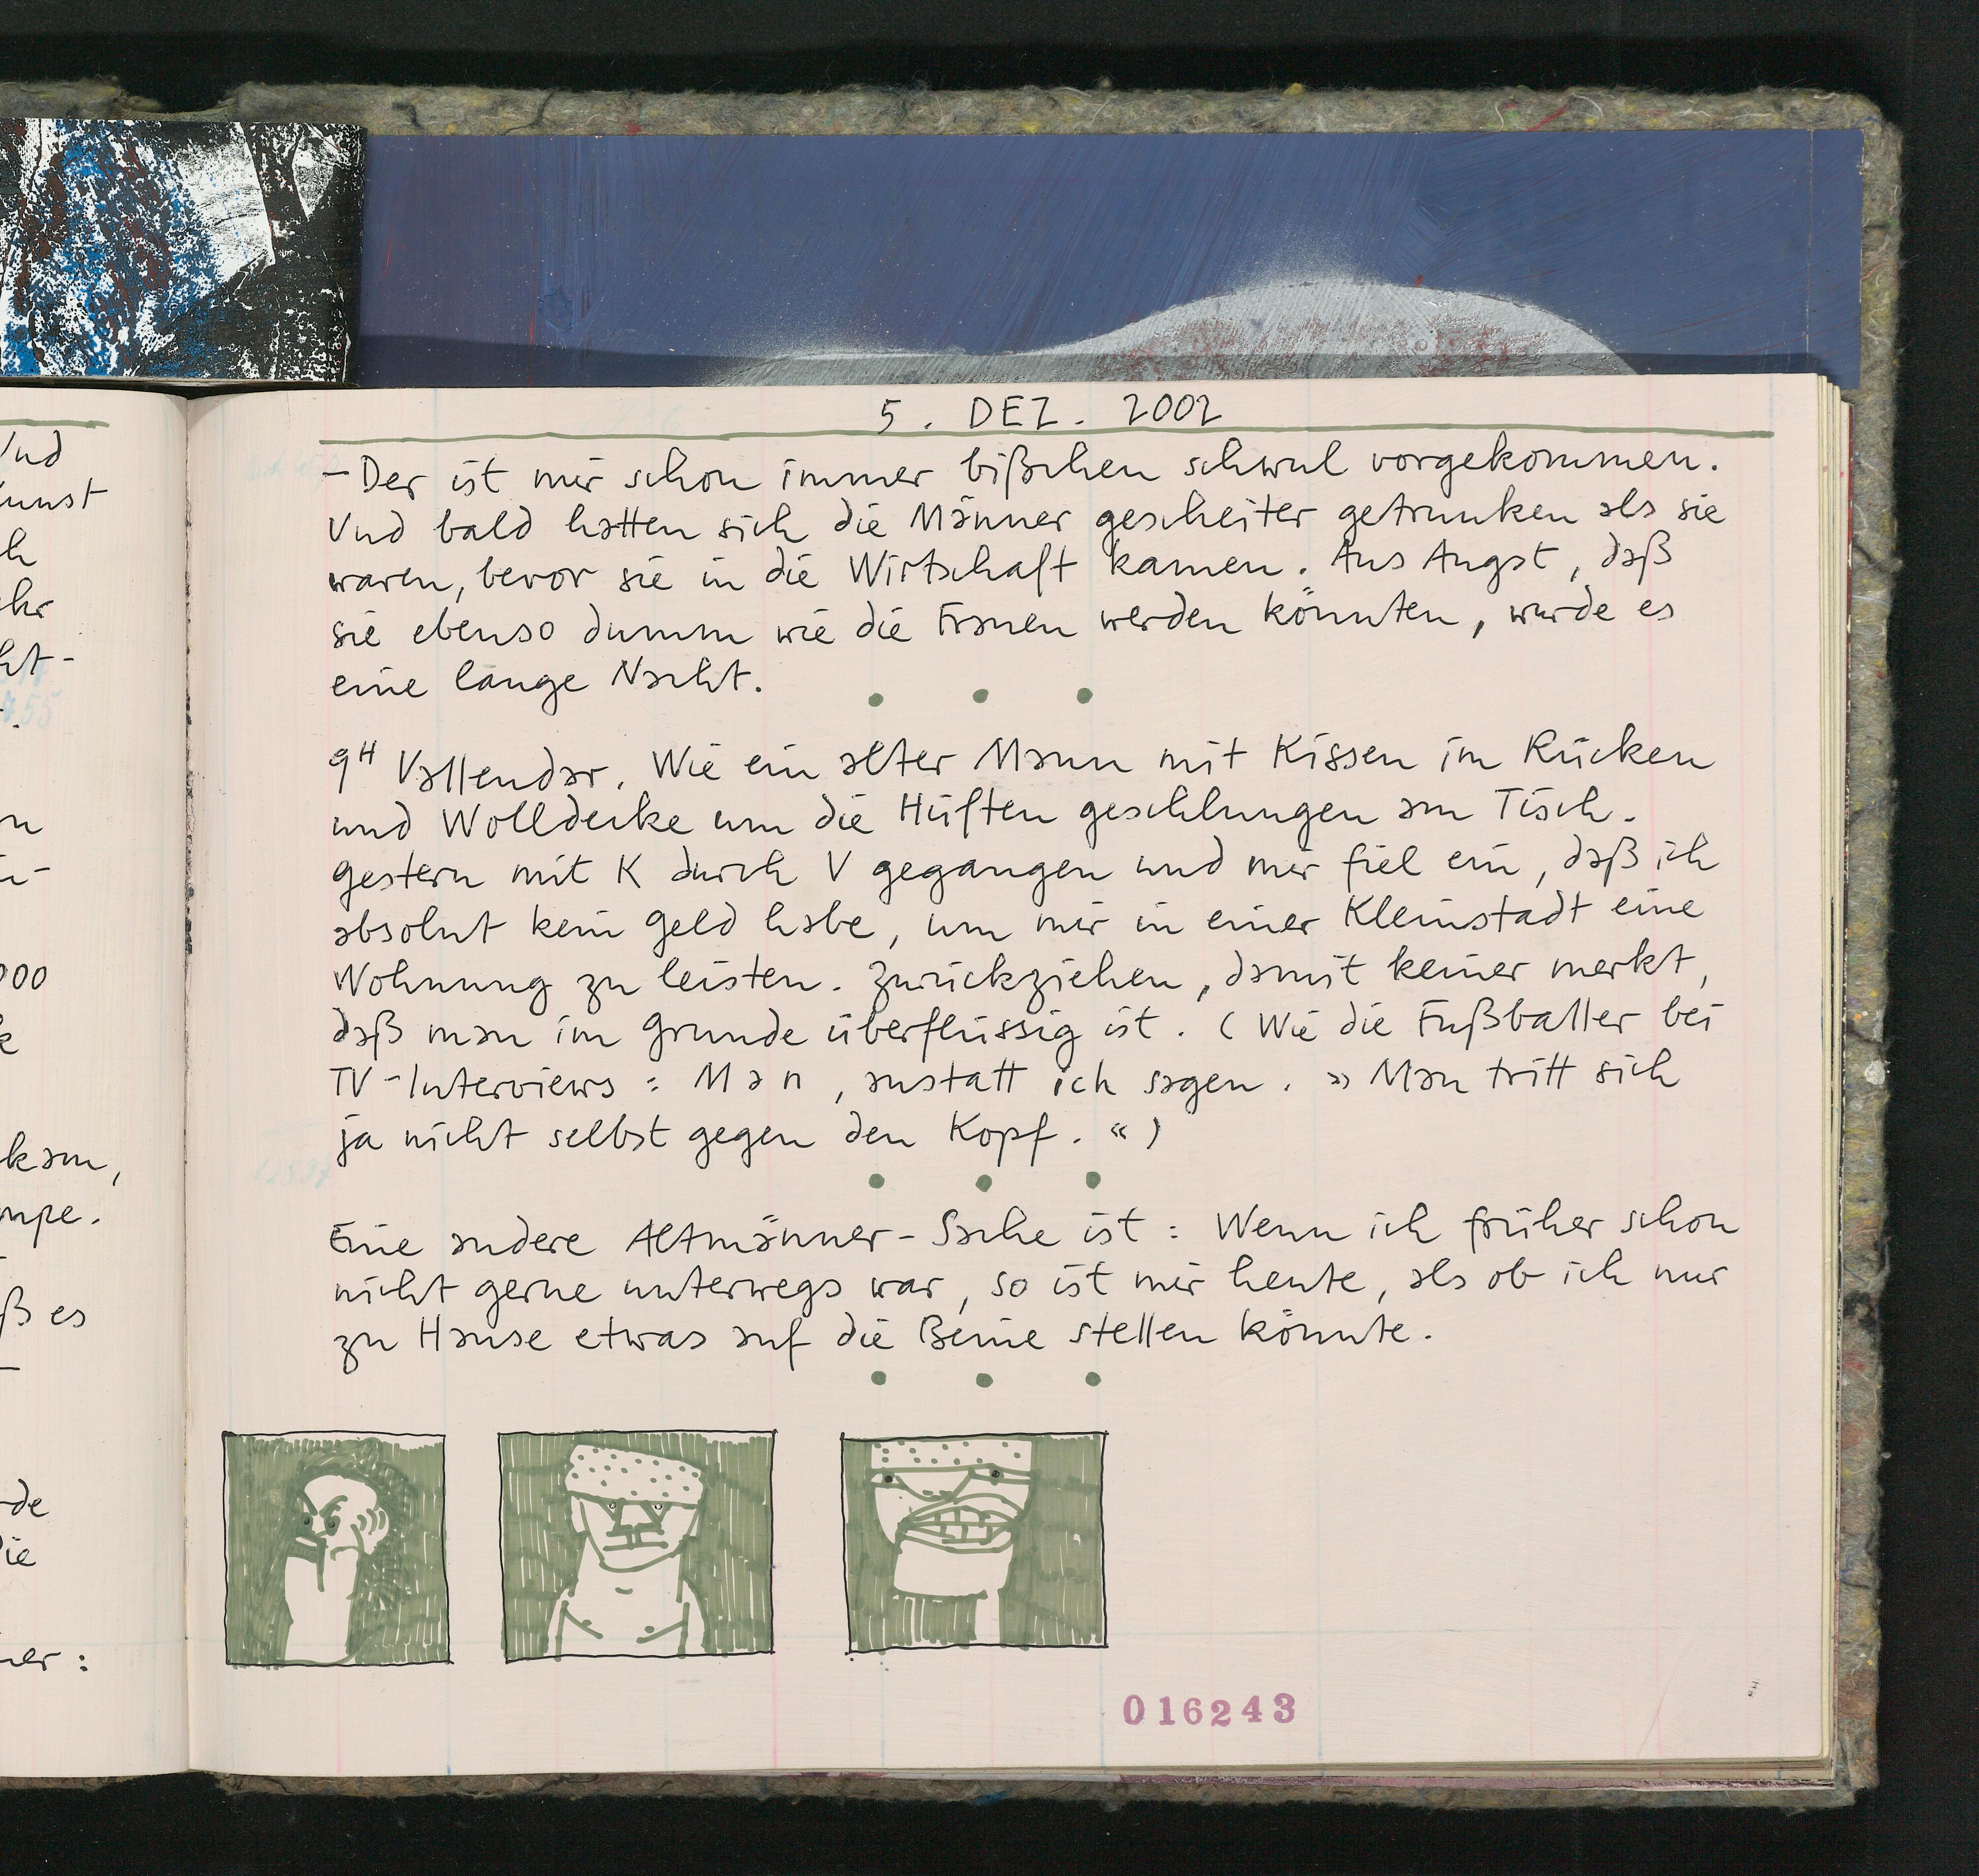 5. DEZ. 2002
– Der ist mir schon immer bißchen schwul vorgekommen.
Und bald hatten sich die Männer gescheiter getrunken als sie
waren, bevor sie in die Wirtschaft kamen. Aus Angst, daß
sie ebenso dumm wie die Frauen werden könnten, wurde es
eine lange Nacht.
9H Vallendar. Wie ein alter Mann mit Kissen im Rücken
und Wolldecke um die Hüften geschlungen am Tisch.
Gestern mit K durch V gegangen und mir fiel ein, daß ich
absolut kein Geld habe, um mir in einer Kleinstadt eine
Wohnung zu leisten. Zurückziehen, damit keiner merkt,
daß man im Grunde überflüssig ist. (Wie die Fußballer bei
TV-Interviews: Man, anstatt ich sagen. »Man tritt sich
ja nicht selbst gegen den Kopf.«)
Eine andere Altmänner-Sache ist: Wenn ich früher schon
nicht gerne unterwegs war, so ist mir heute, als ob ich nur
zu Hause etwas auf die Beine stellen könnte.
016243